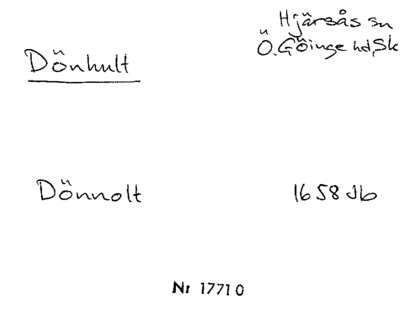 Hjärsås sn
Ö. Göinge hd, Sk
Dönhult
Dönnolt 1658 Jb
Nr 17710